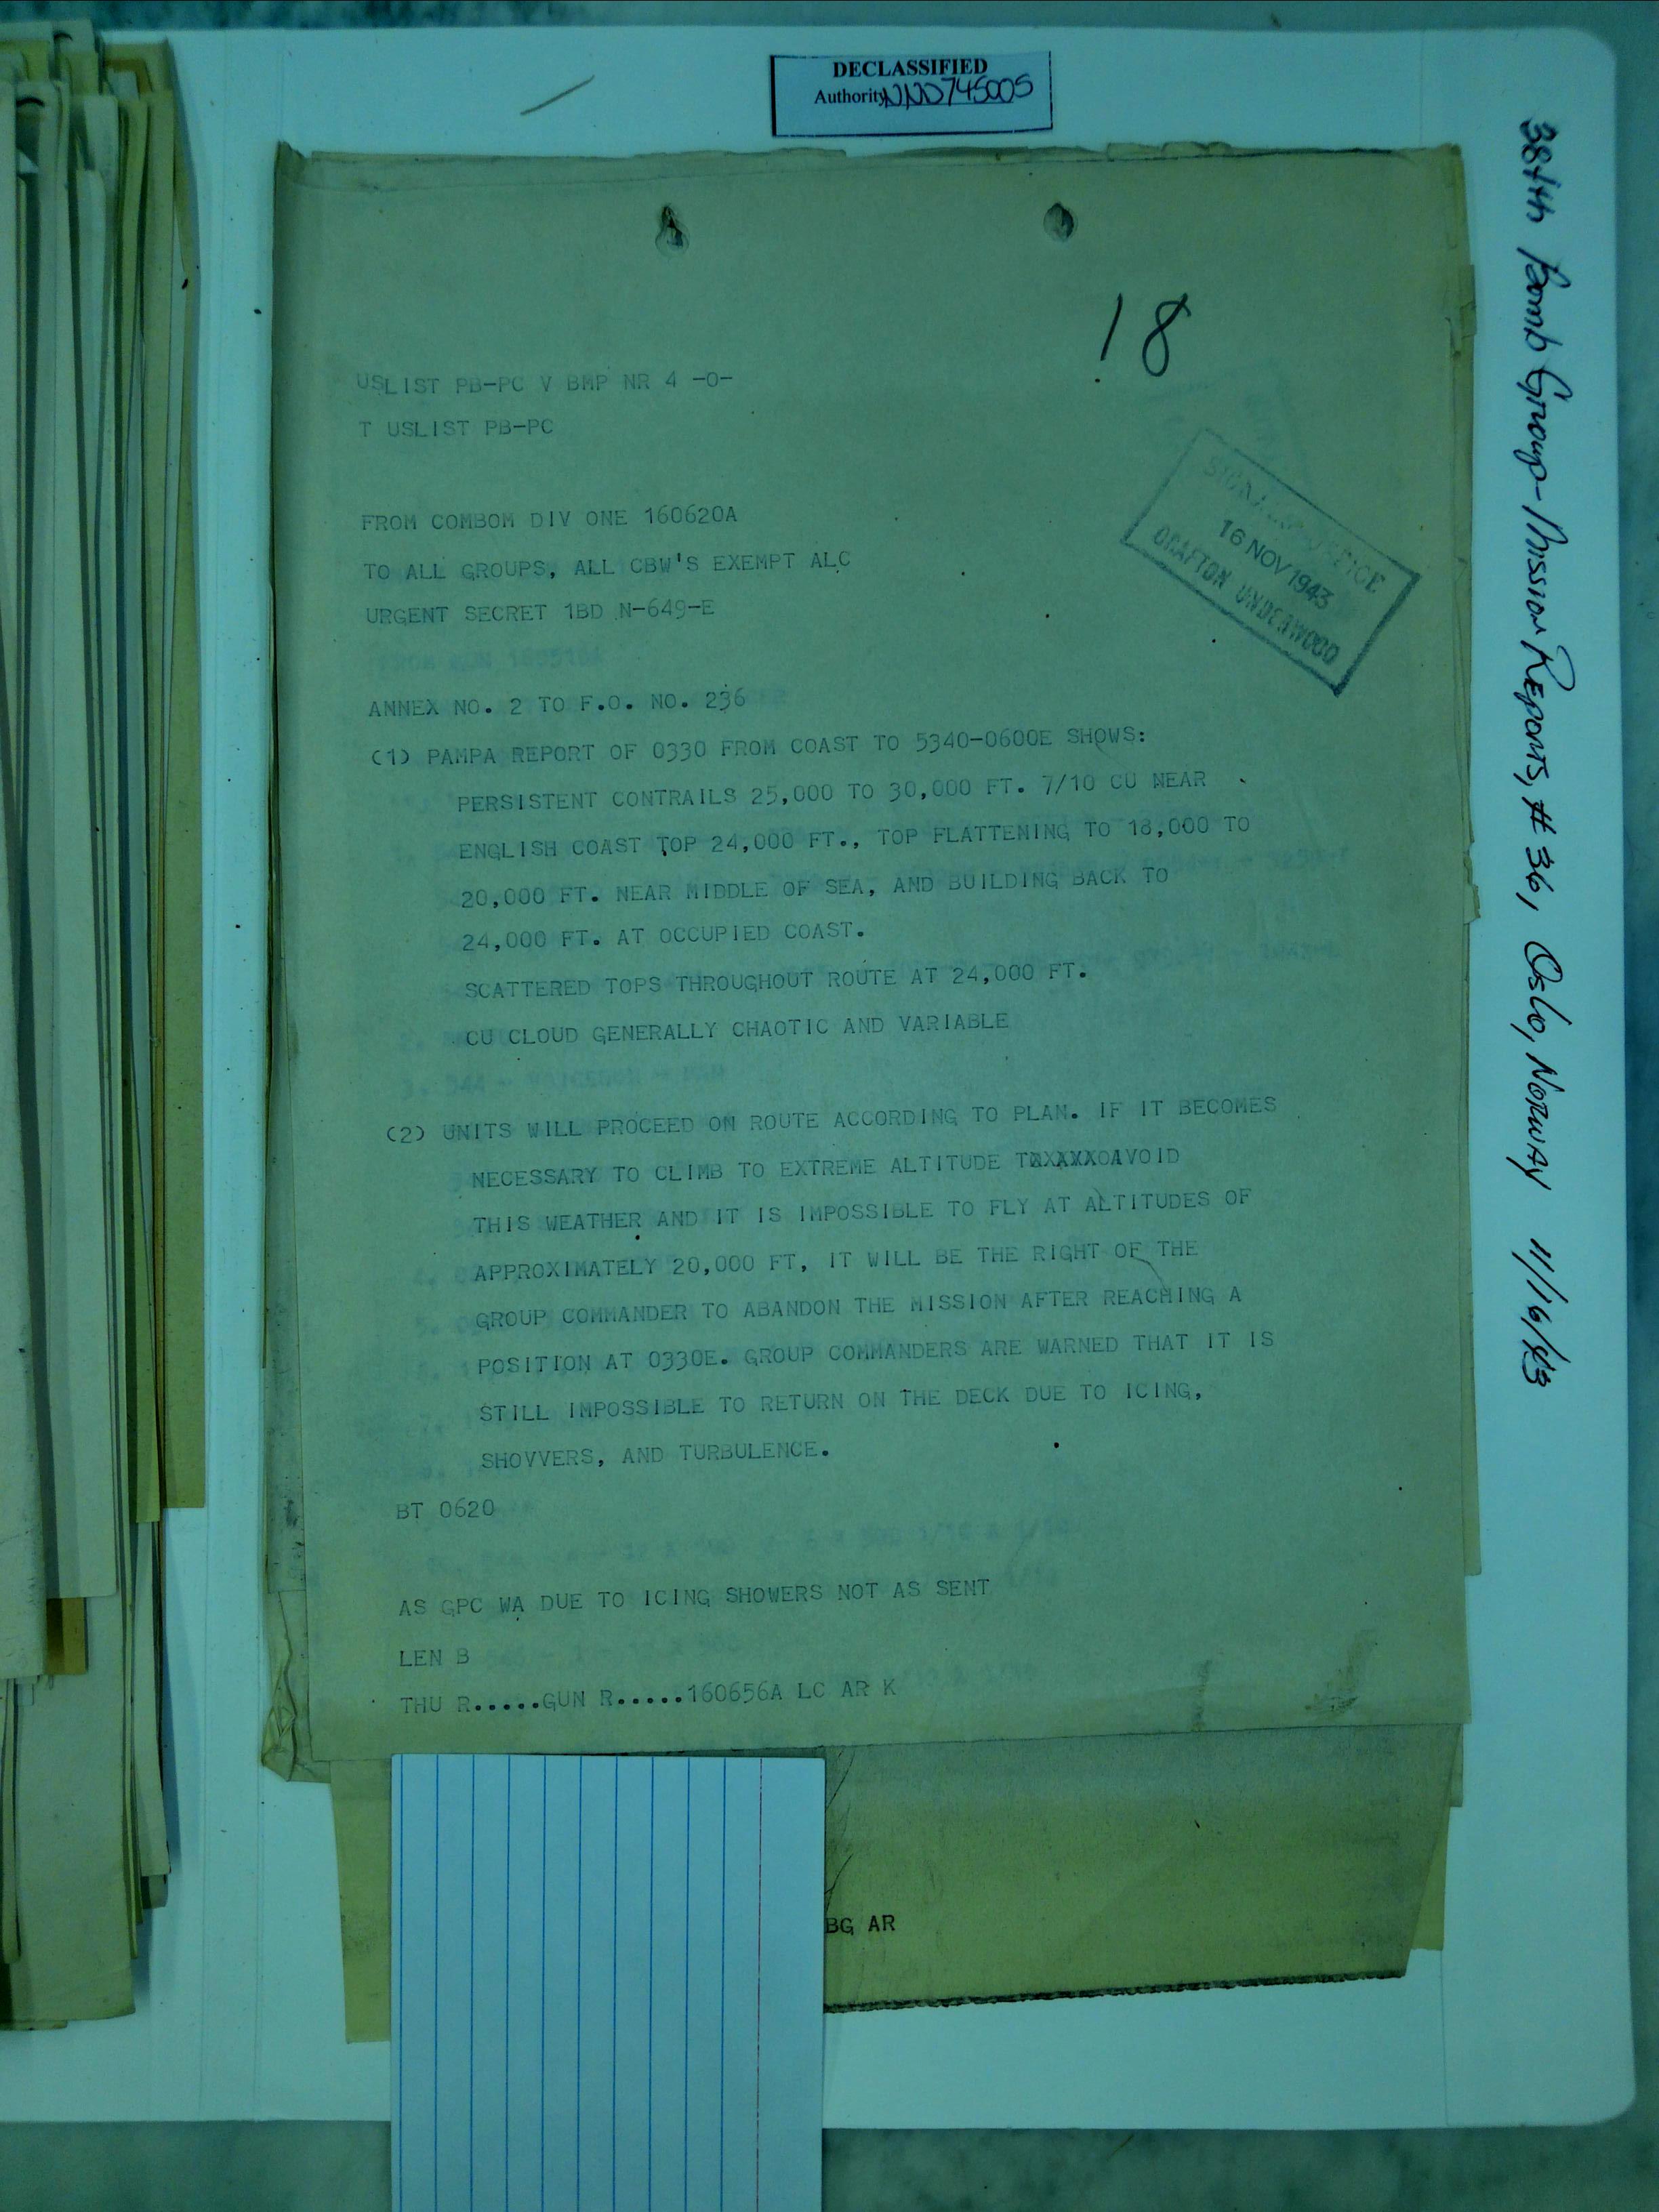 DECLASSIFIED
Authority NND745005
18
USLIST PB-PC V BMP NR 4 -O-
T USLIST PB-PC
16 NOV 1943
GRAFTON UNDERWOOD
FROM COMBOM DIV ONE 160620A
TO ALL GROUPS, ALL CBW'S EXEMPT ALC
URGENT SECRET 1BD N-649-E
ANNEX NO. 2 TO F.O. NO. 236
(1) PAMPA REPORT OF 0330 FROM COAST TO 5340-0600E SHOWS:
PERSISTENT CONTRAILS 25,000 TO 30,000 FT. 7/10 CU NEAR
ENGLISH COAST TOP 24,000 FT., TOP FLATTENING TO 18,000 TO
20,000 FT. NEAR MIDDLE OF SEA, AND BUILDING BACK TO
24,000 FT. AT OCCUPIED COAST.
SCATTERED TOPS THROUGHOUT ROUTE AT 24,000 FT.
CU CLOUD GENERALLY CHAOTIC AND VARIABLE
(2) UNITS WILL PROCEED ON ROUTE ACCORDING TO PLAN. IF IT BECOMES
NECESSARY TO CLIMB TO EXTREME ALTITUDE AVOID
THIS WEATHER AND IT IS IMPOSSIBLE TO FLY AT ALTITUDES OF
APPROXIMATELY 20,000 FT, IT WILL BE THE RIGHT OF THE
GROUP COMMANDER TO ABANDON THE MISSION AFTER REACHING A
POSITION AT 0330E. GROUP COMMANDERS ARE WARNED THAT IT IS
STILL IMPOSSIBLE TO RETURN ON THE DECK DUE TO ICING,
SHOVVERS, AND TURBULENCE.
BT 0620
AS GPC WA DUE TO ICING SHOWERS NOT AS SENT
LEN B
THU R.....GUN R.....160656A LC AR K
BG AR
384th Bomb Group - Mission Reports, # 36, Oslo, Norway 11/16/43